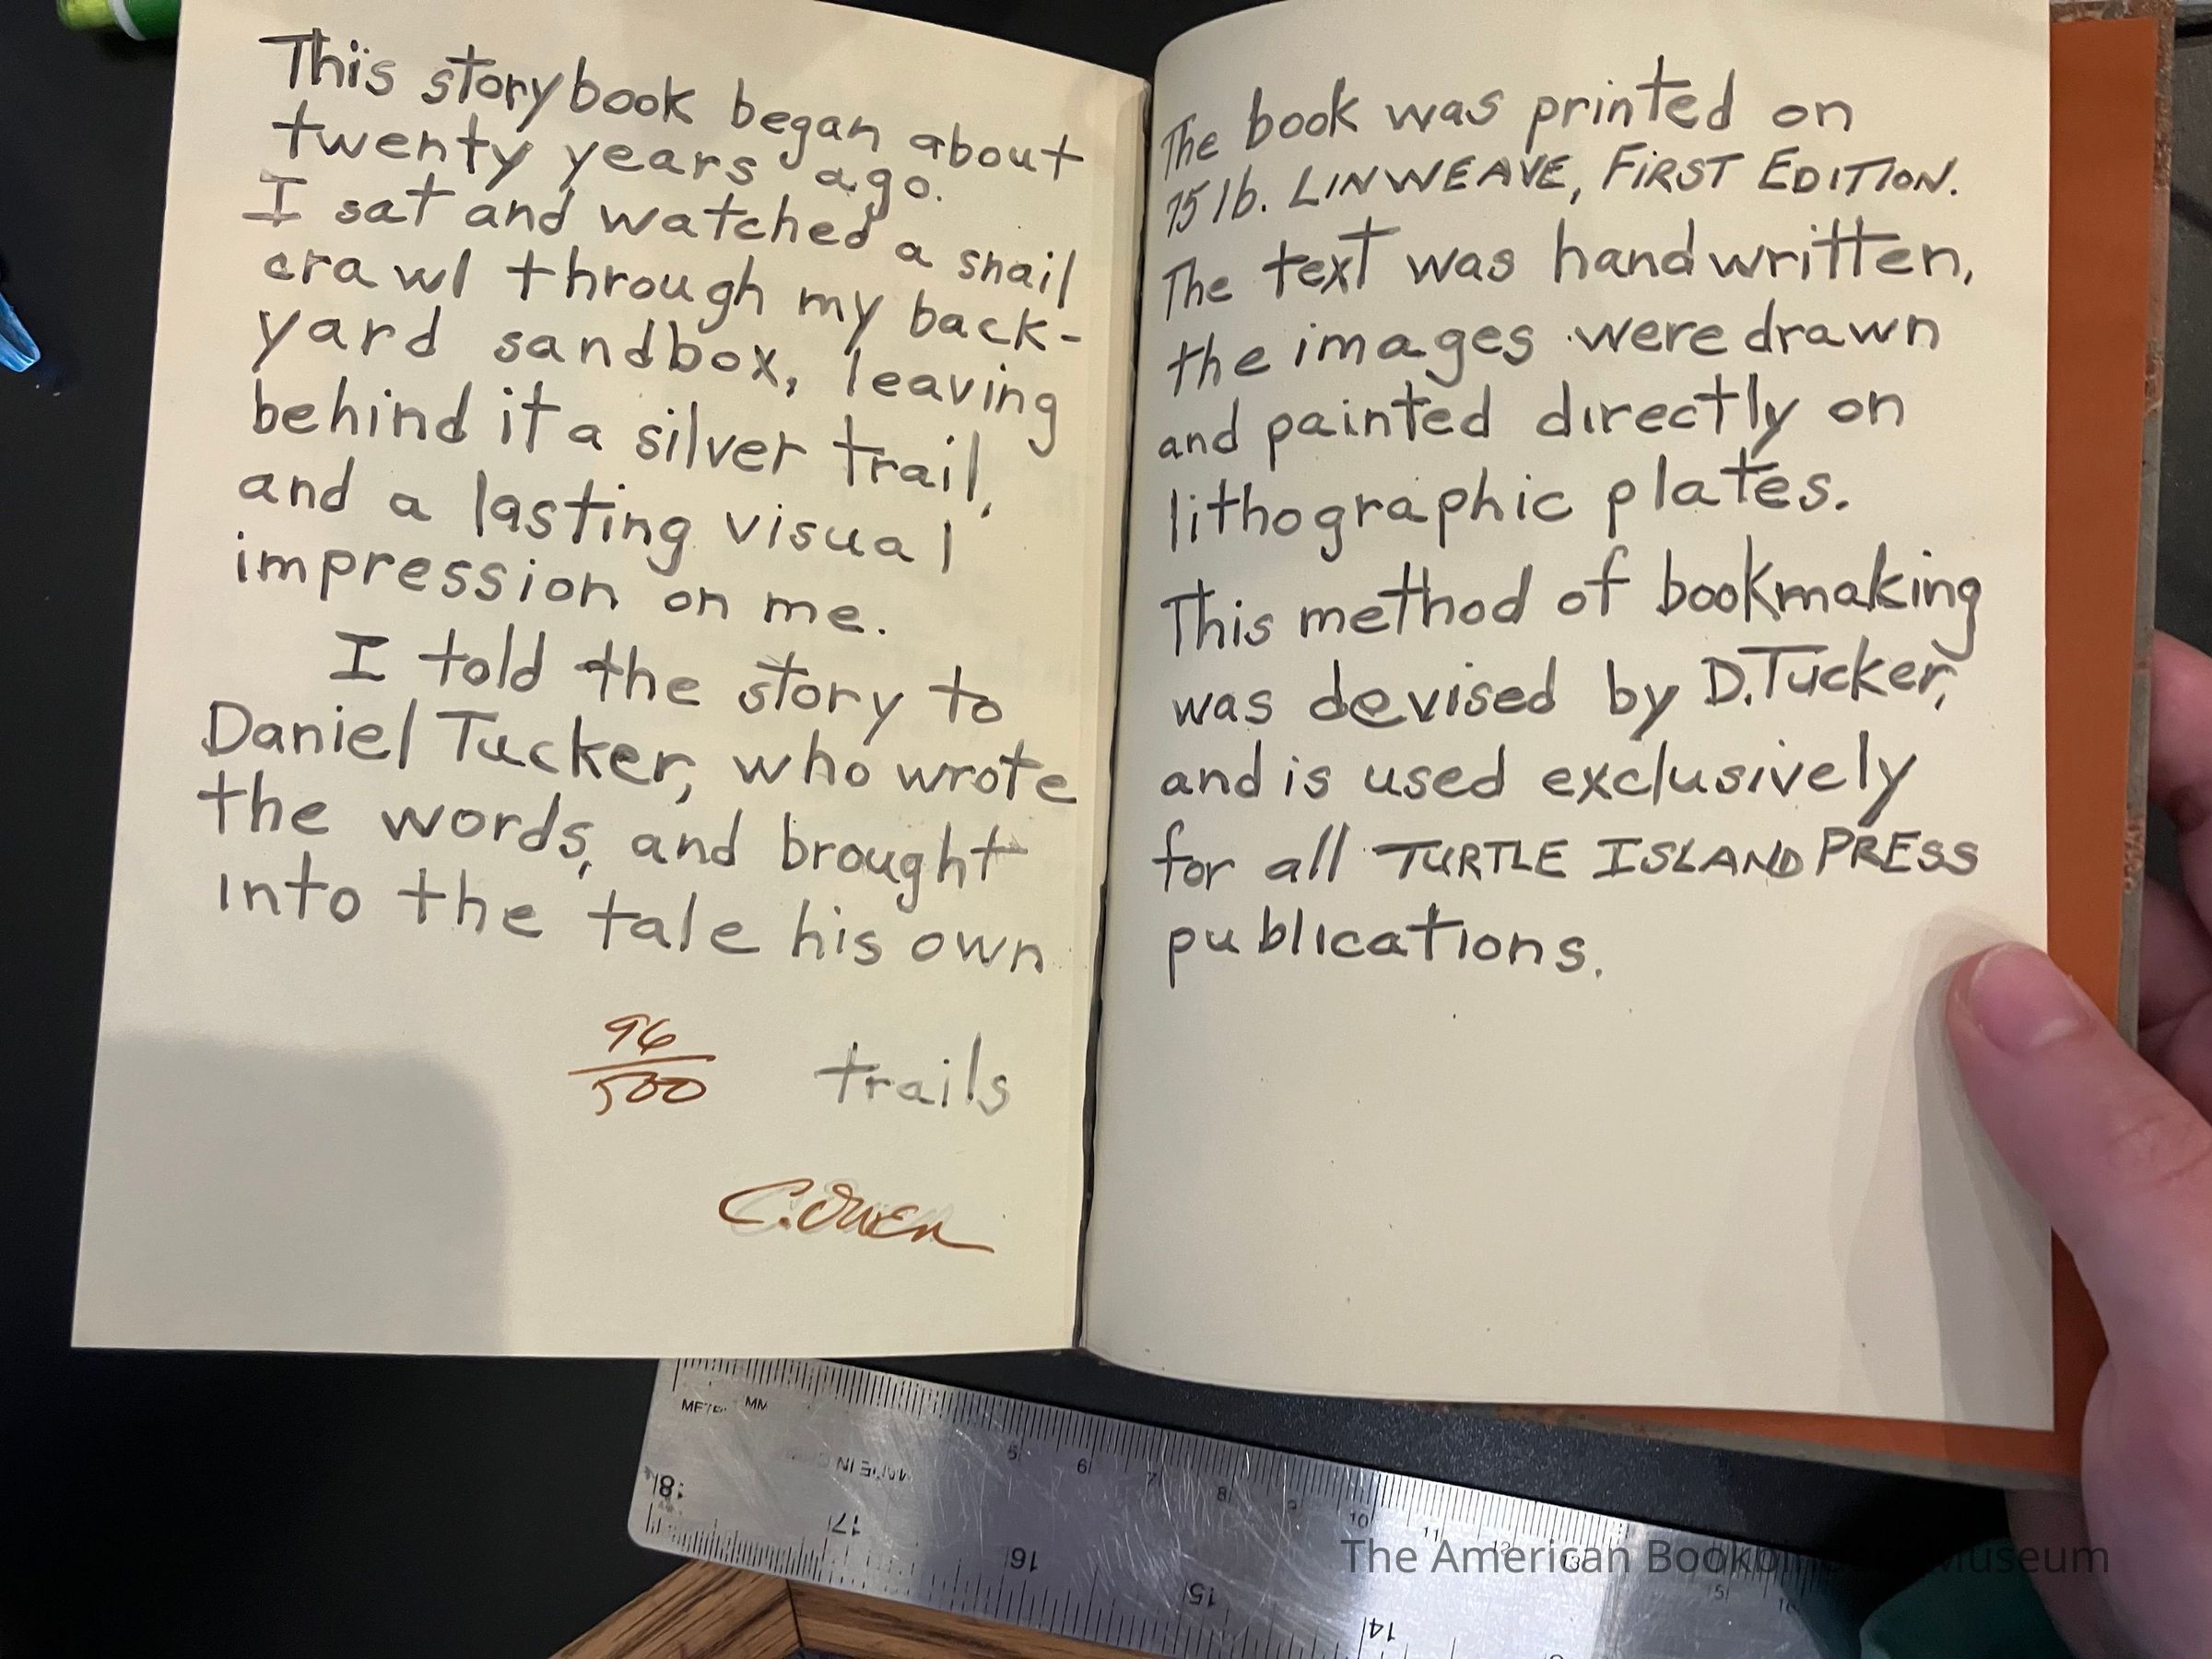 This storybook began about
twenty years ago.
I sat and watched a snail
crawl through my back-
yard sandbox, leaving
behind it a silver trail,
and a lasting visual
impression on me.
I told the story to
Daniel Tucker, who wrote
the words, and brought
into the tale his own
trails
96/500
C. Owen
The book was printed on
75 lb. LINWEAVE, FIRST EDITION.
The text was handwritten,
the images were drawn
and painted directly on
lithographic plates.
This method of bookmaking
was devised by D. Tucker,
and is used exclusively
for all TURTLE ISLAND PRESS
publications.
MM
5 6 7 8 9 10 11 12 13
18 17 16 15 14
The American Bookbinders Museum